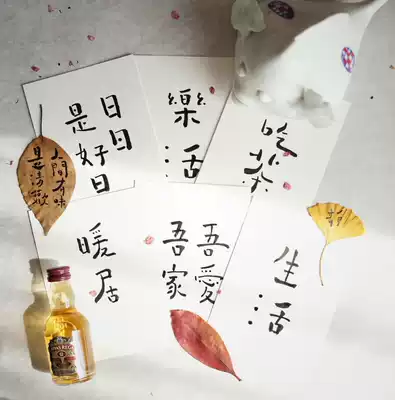 日日
是好日
樂活
吃茶
人間有味
是清歡
暖居
吾愛
吾家
生活
CHIVAS REGAL